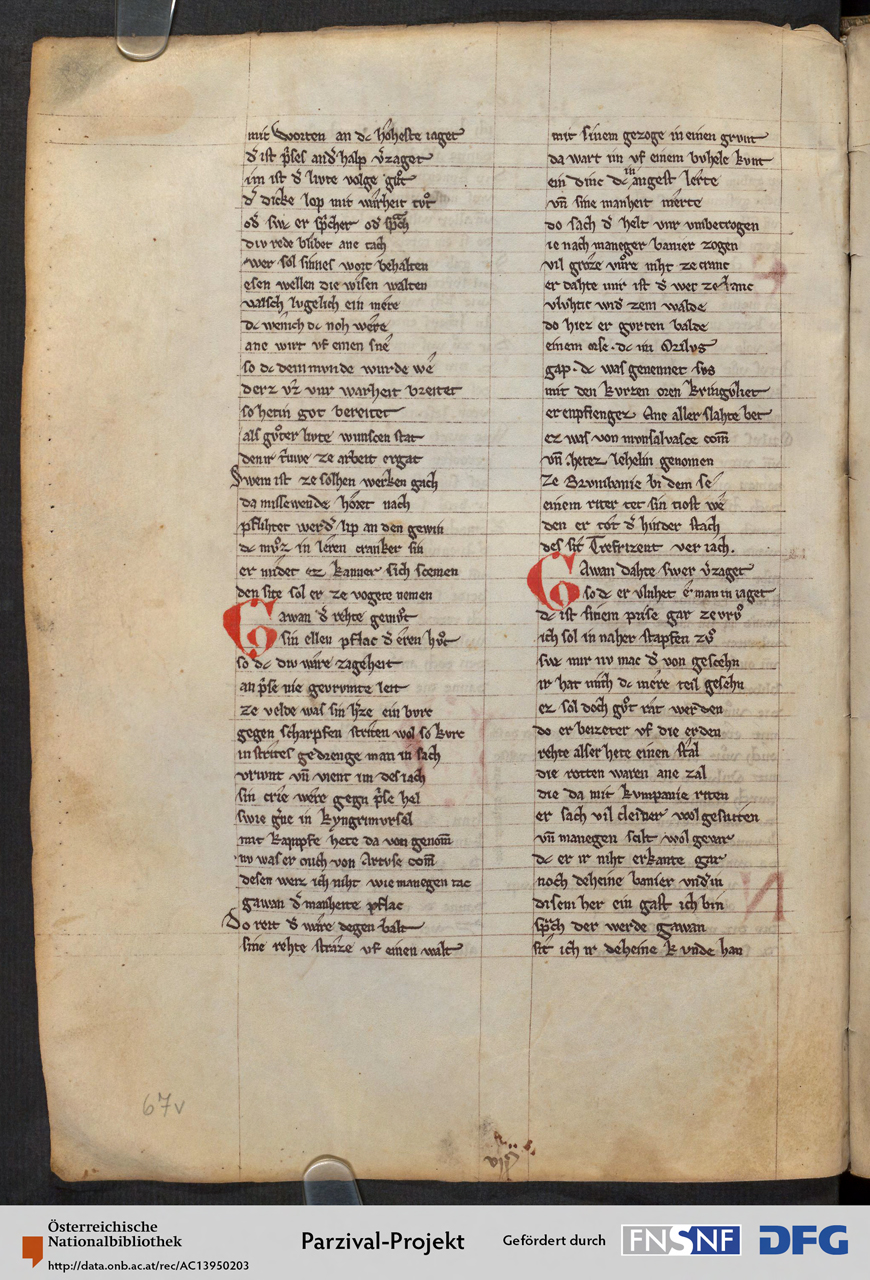 mit worten an dc hoheste iaget
d̾ ist p̾ses and̾ halp v̾zaget
im ist d̾ livte volge gůt
d̾ dicke lop mit warheit tůt
od̾ swc er sp̾cher od̾ sp̾ch
div rede blibet ane tach
wer sol sinnes wort behalten
esen wellen die wisen walten
valsch lugelich ein mere
dc wenich dc noh were
ane wirt vf einen sne
so dc dem mvnde wurde we
derz vz vur warheit breitet
so hetin got bereitet
als gůter livte wunscen stat
den ir triwe ze arbeit ergat
Swem ist ze solhen werken gach
da missewende hoͤret nach
pflihtet werd̾ lip an den gewin
dc můz in leren cranker sin
er midet ez kanner sich scemen
den site sol er ze vogete nemen
Gawan d̾ rehte gemůt
sin ellen pflac d̾ eren hůt
so dc div ware zageheit
an p̾se nie gevrvmte leit
ze velde was sin h̾ze ein burc
gegen scharpfen striten wol so kurc
in strites gedrenge man in sach
vrivnt vn̄ vient im des iach
sin crie were gegn p̾se hel
swie g̾ne in kyngrimvrsel
mit kampfe hete da von genom̄
nv was er ouch von Artuse com̄
desen weiz ich niht wie manegen tac
gawan d̾ manheite pflac
Do reit d̾ ware degen balt
sine rehte straze vf einen walt
mit sinem gezoge in einen grvnt
da wart im vf einem buhele kunt
ein dinc dc in angest lerte
vn̄ sine manheit merte
do sach d̾ helt vnr vmbetrogen
ie nach maneger banier zogen
vil groze vůre niht ze cranc
er dahte mir ist d̾ wec ze lanc
vluhtic wid̾ zem walde
do hiez er gvrten balde
einem orse · dc im Orilus
gap · dc was genennet sus
mit den kurzen oren kringuliet
er enpfienger Ane aller slahte bet
ez was von mvnsalvasce com̄
vn̄ hetez lehelin genomen
Ze Brvnbanie bi dem se
einem riter tet sin tiost we
den er tot d̾ hinder stach
des sit Trefrizent ver iach.
Gawan dahte swer v̾zaget
so dc er vluhet e man in iaget
dc ist sinem prise gar ze vrů
ich sol in naher stapfen zů
swc mir nv mac d̾ von gescehn
ir hat mich dc mere teil gesehn
ez sol doch gůt rat werden
do er beizeter vf die erden
rehte alser hete einen stal
die rotten waren ane zal
die da mit kvmpanie riten
er sach vil cleider wol gesniten
vn̄ manegen scilt wol gevar
dc er ir niht erkante gar
noch deheine banier vnd̾ in
disem her ein gast ich bin
sp̾ch der werde gawan
sit ich ir deheine kvnde han
67v
Österreichische
Nationalbibliothek
http://data.onb.ac.at/rec/AC13950203
Parzival-Projekt
Gefördert durch
FNSNF
DFG